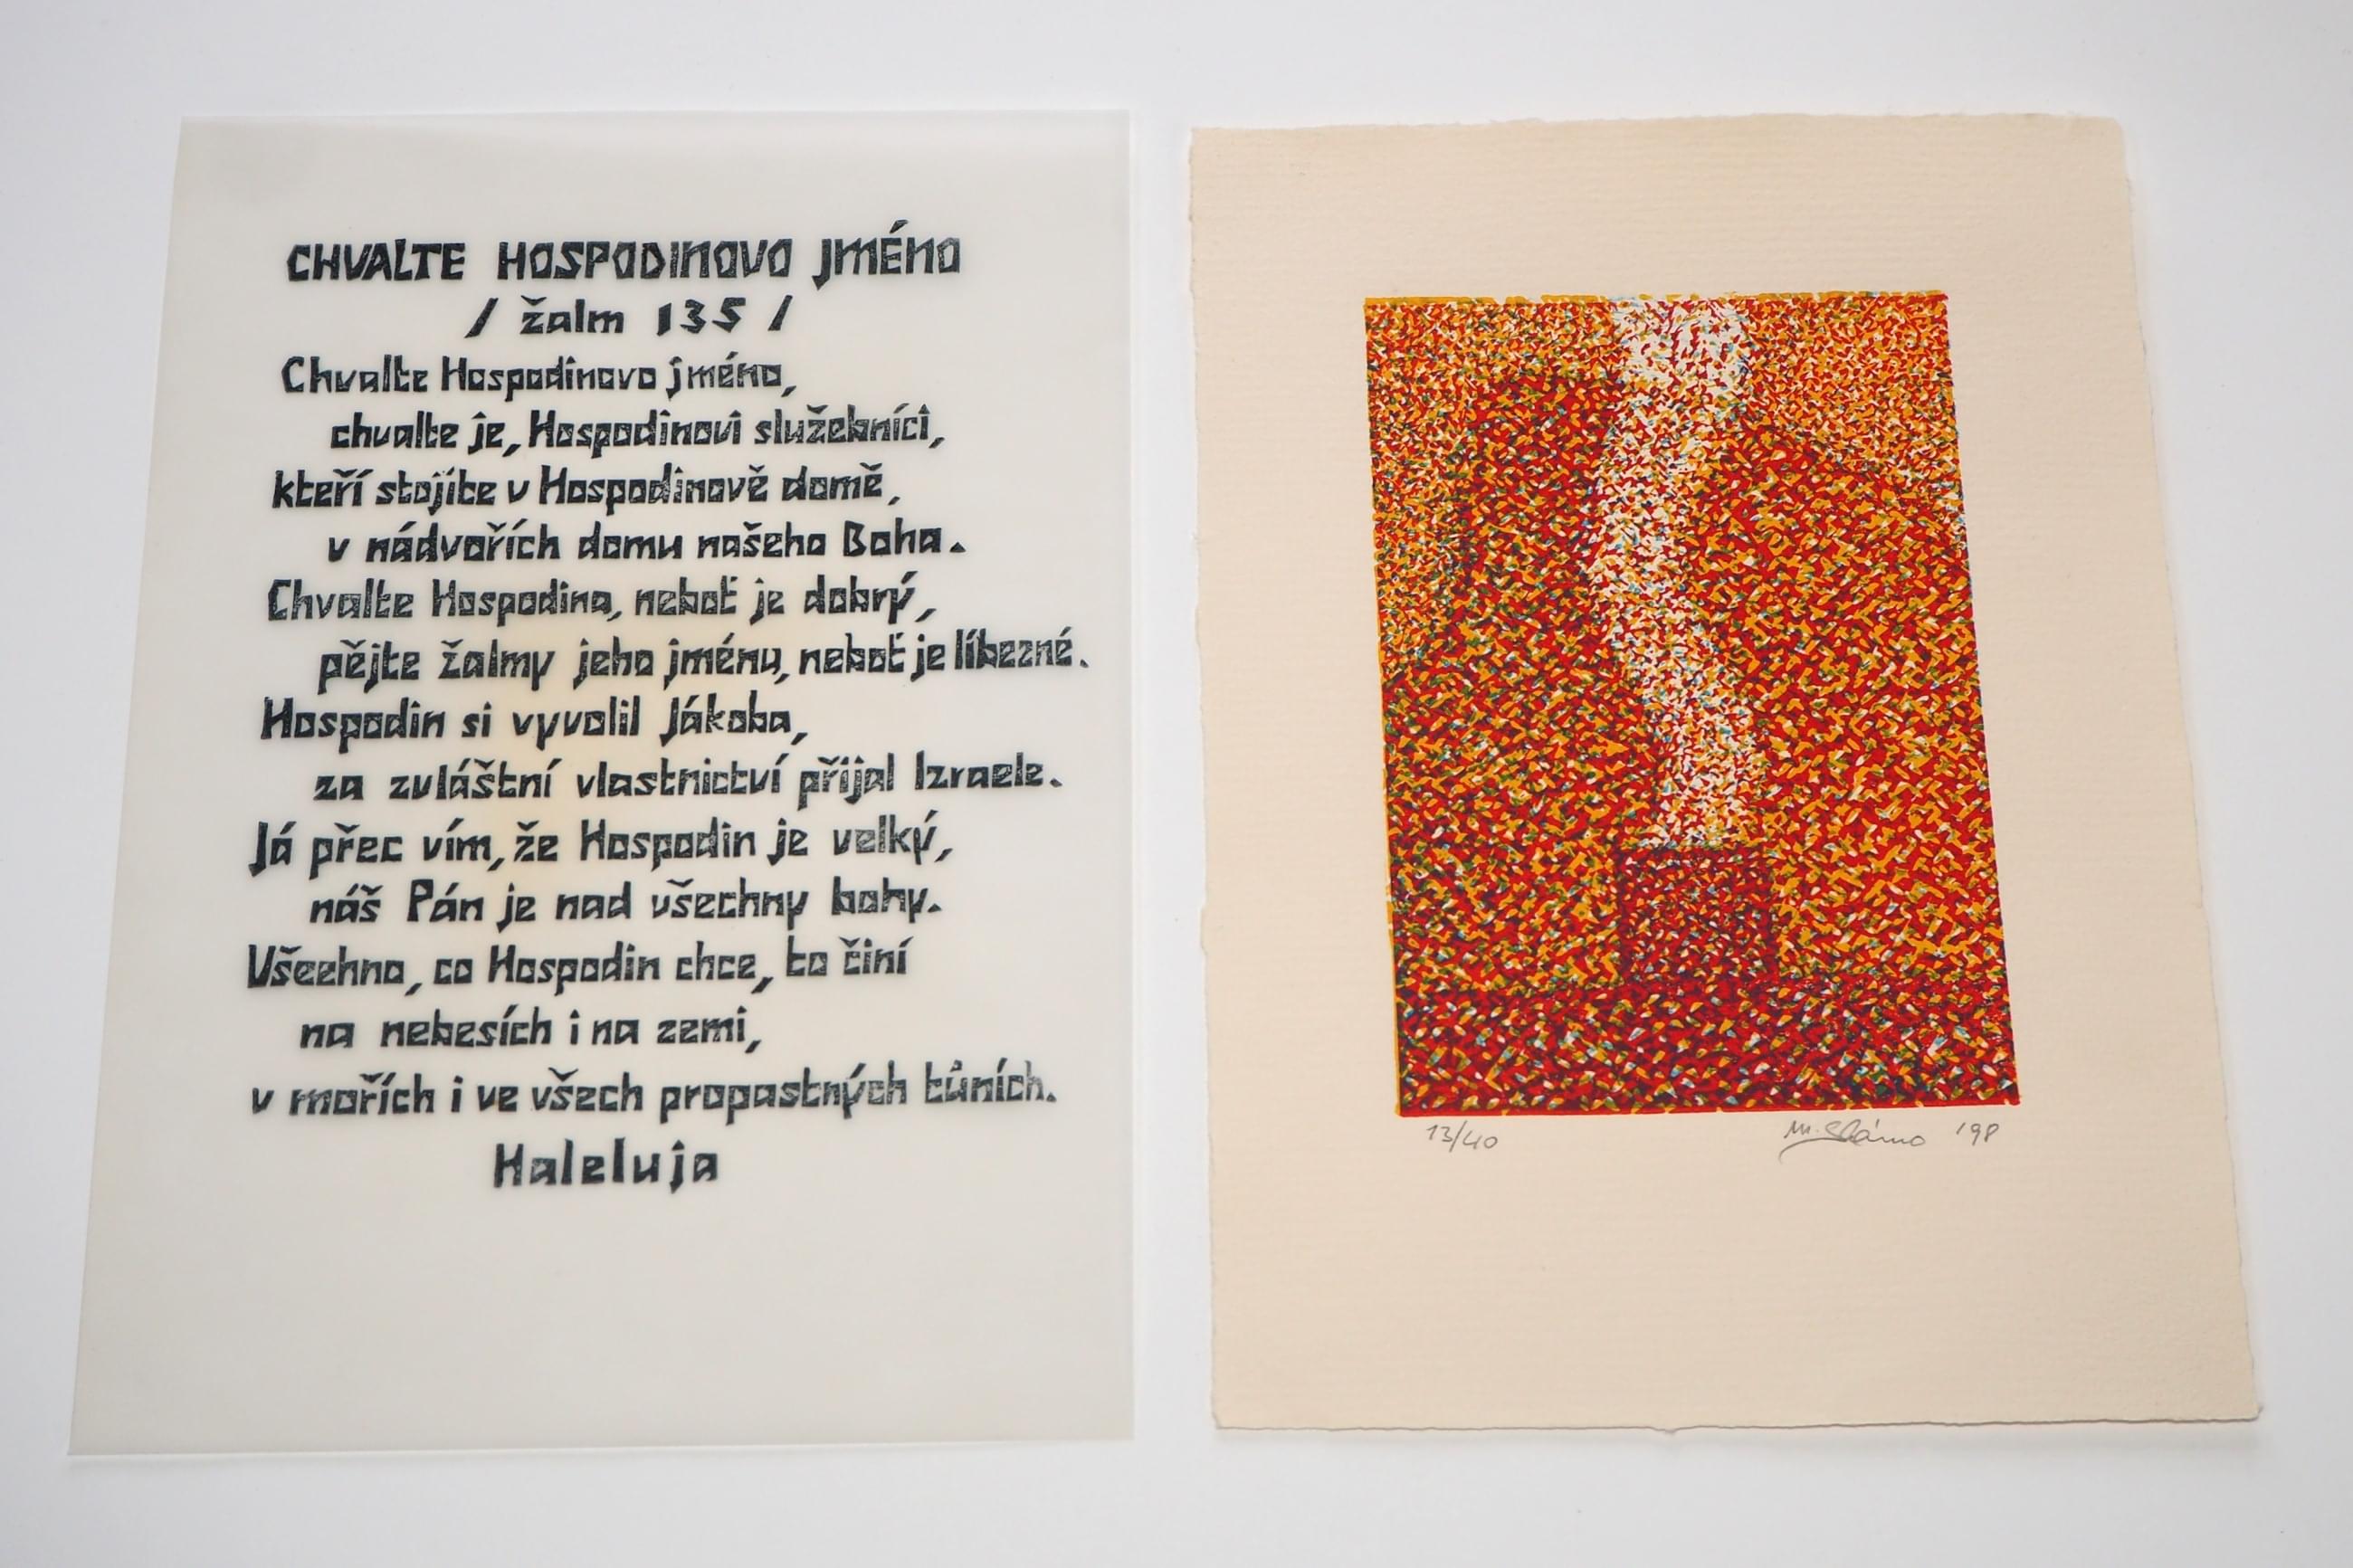 CHVALTE HOSPODINOVO JMÉNO
/ žalm 135 /
Chvalte Hospodinovo jméno,
chvalte je, Hospodinovi služebníci,
kteří stojíte v Hospodinově domě,
v nádvořích domu našeho Boha.
Chvalte Hospodina, neboť je dobrý,
pějte žalmy jeho jménu, neboť je líbezné.
Hospodin si vyvolil Jákoba,
za zvláštní vlastnictví přijal Izraele.
Já přec vím, že Hospodin je velký,
náš Pán je nad všechny bohy.
Všechno, co Hospodin chce, to činí
na nebesích i na zemi,
v mořích i ve všech propastných tůních.
Haleluja
13/40
M. Sláma '98